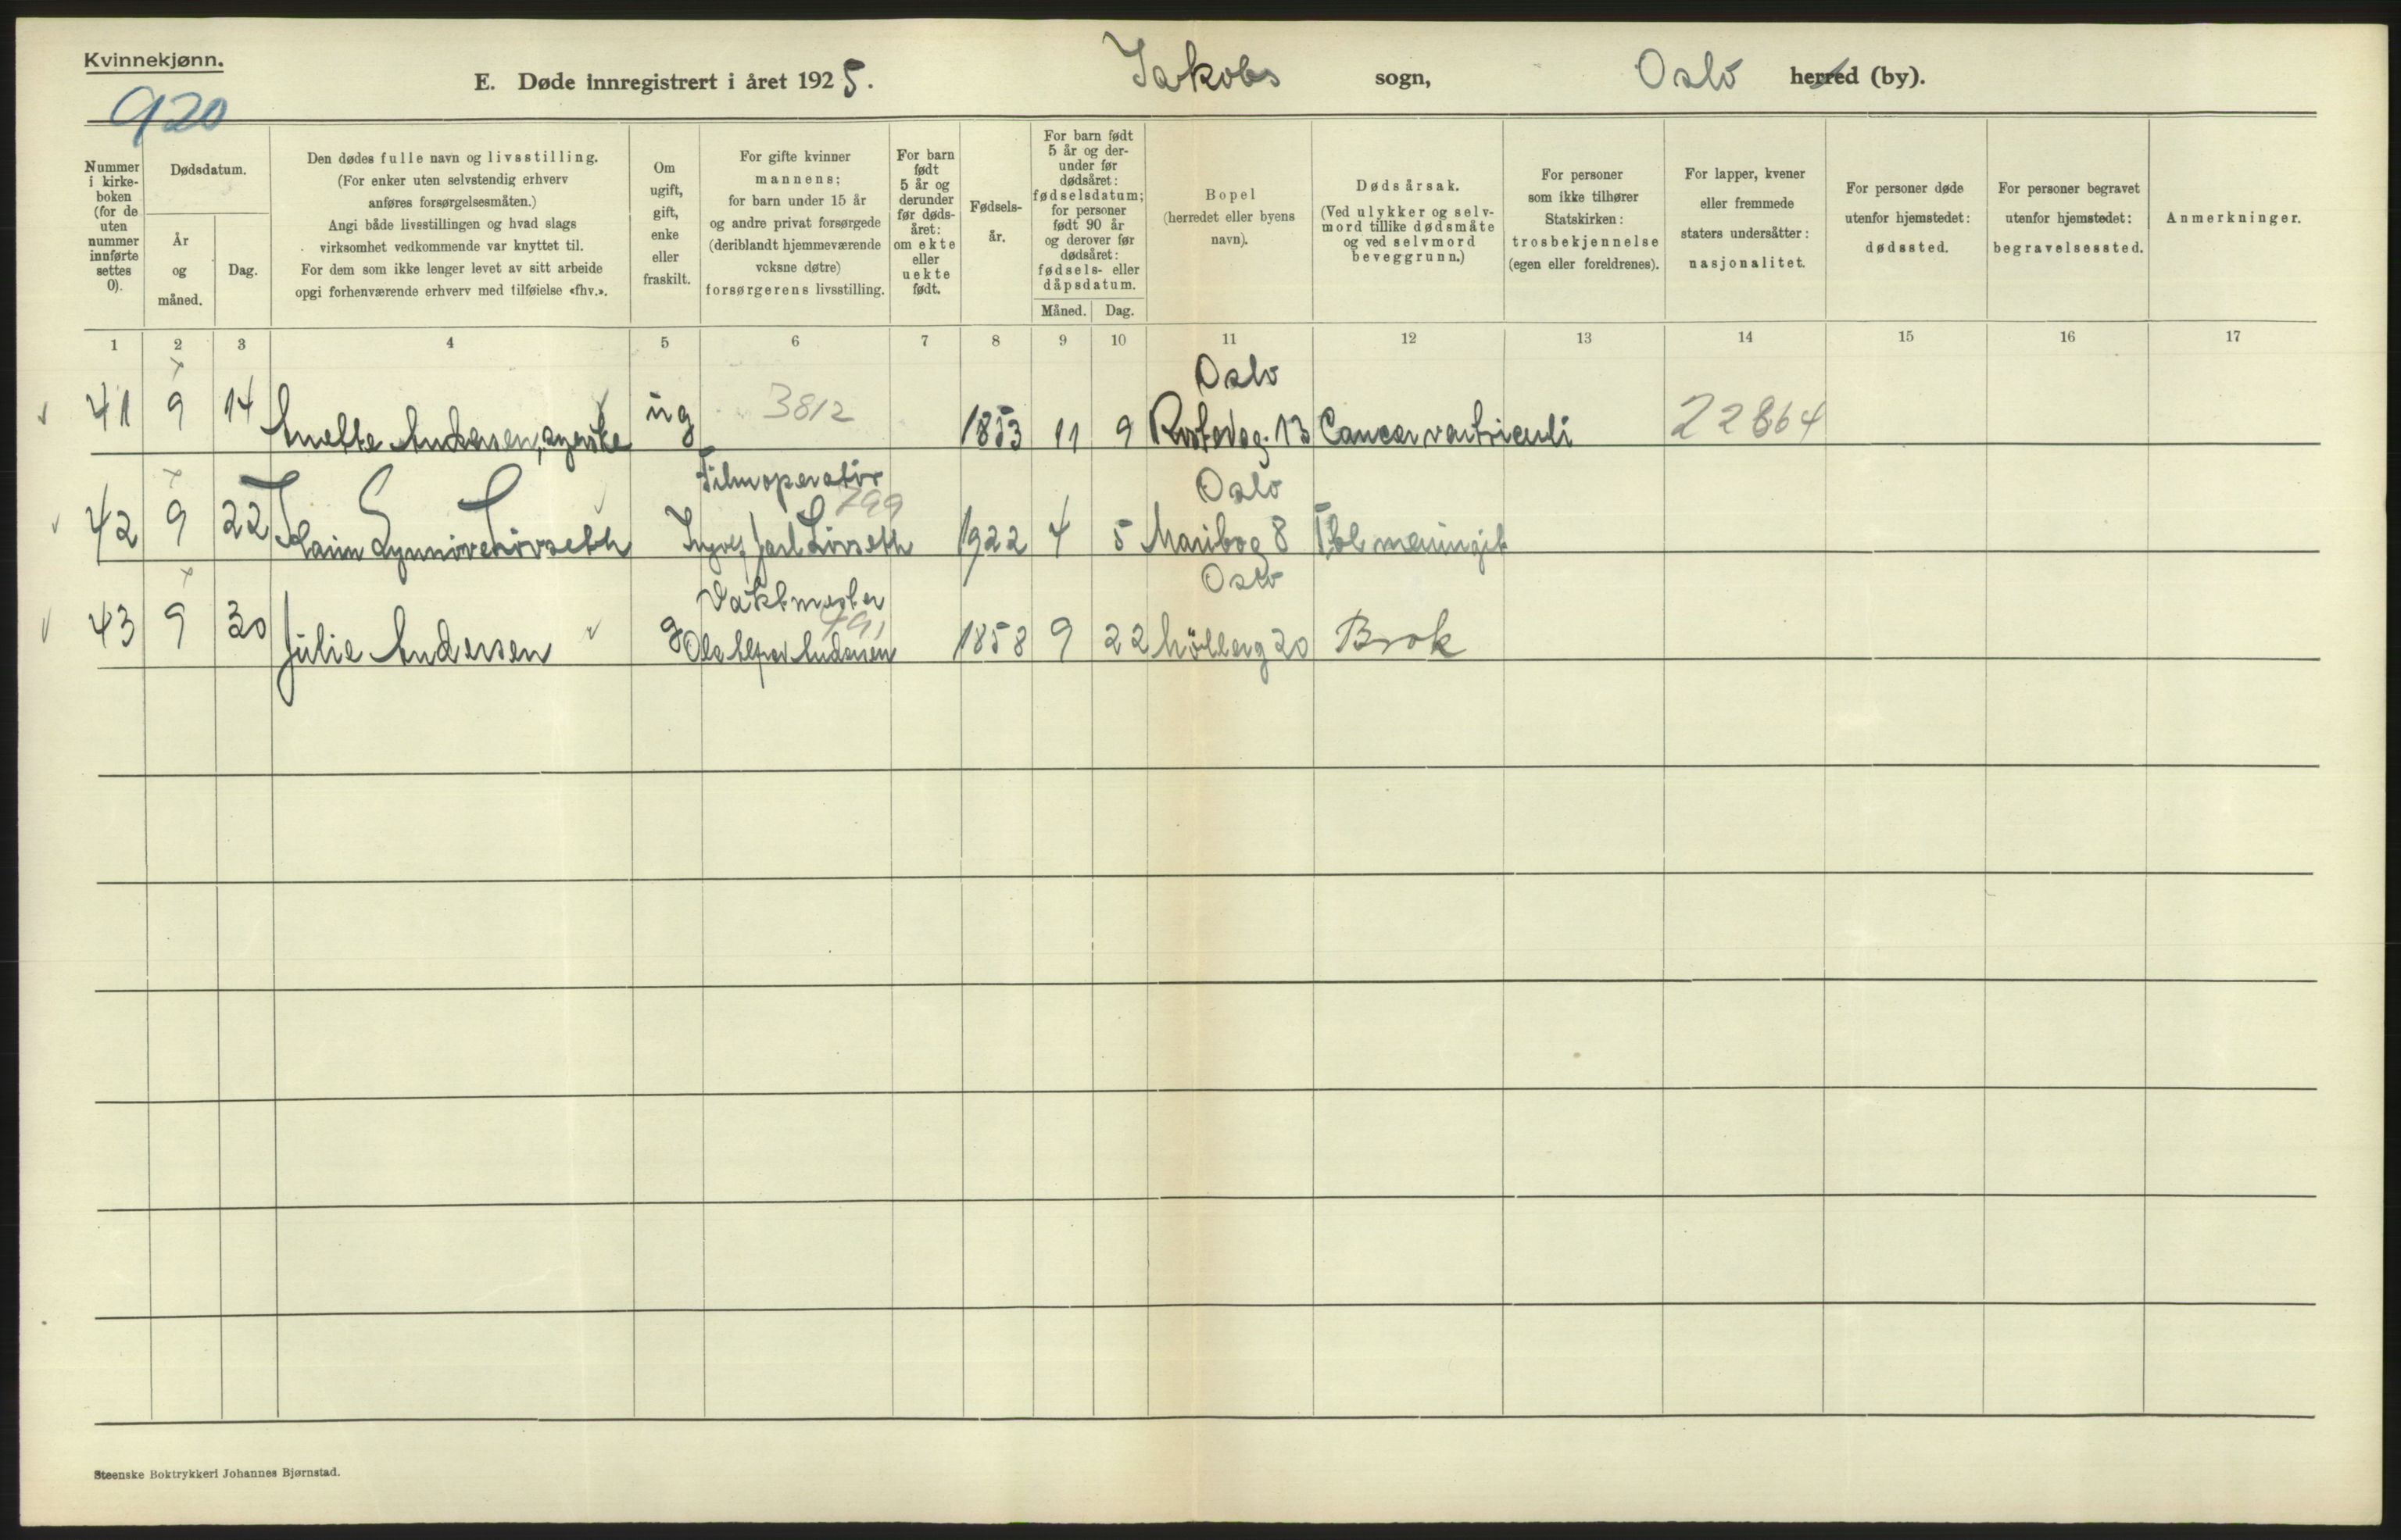 Kvinnekjønn.
920
E. Døde innregistrert i året 1925. Jakobs sogn, Oslo herred (by).
Nummer i kirke-boken (for de uten nummer innførte settes 0).
Dødsdatum.
År og måned.
Dag.
Den dødes fulle navn og livsstilling.
(For enker uten selvstendig erhverv
anføres forsørgelsesmåten.)
Angi både livsstillingen og hvad slags
virksomhet vedkommende var knyttet til.
For dem som ikke lenger levet av sitt arbeide
opgi forhenværende erhverv med tilføielse «fhv.».
Om ugift, gift, enke eller fraskilt.
For gifte kvinner
mannens;
for barn under 15 år
og andre privat forsørgede
(deriblandt hjemmeværende
voksne døtre)
forsørgerens livsstilling.
For barn
født
5 år og
derunder
før døds-
året:
om ekte
eller
uekte
født.
Fødsels-
år.
For barn født
5 år og der-
under før
dødsåret:
fødselsdatum;
for personer
født 90 år
og derover før
dødsåret:
fødsels- eller
dåpsdatum.
Måned. Dag.
Bopel
(herredet eller byens
navn).
Dødsårsak.
(Ved ulykker og selv-
mord tillike dødsmåte
og ved selvmord
beveggrunn.)
For personer
som ikke tilhører
Statskirken:
trosbekjennelse
(egen eller foreldrenes).
For lapper, kvener
eller fremmede
staters undersåtter:
nasjonalitet.
For personer døde
utenfor hjemstedet:
dødssted.
For personer begravet
utenfor hjemstedet:
begravelsessted.
Anmerkninger.
1 2 3 4 5 6 7 8 9 10 11 12 13 14 15 16 17
Oslo
41 9 14 Anette Andersen, syerske ug 3812 1853 11 9 13 Cancer ventriculi 22864
Filmoperatør Oslo
799
42 9 22 Karin Synnøve Løvseth Ingolf Jarl Løvseth 1922 4 5 Maribog 8 Tbl meningit
Vaktmester Oslo
791
43 9 30 Julie Andersen g Ole Alfred Andersen 1858 9 22 Mølleg 20 Brok
Steenske Boktrykkeri Johannes Bjørnstad.